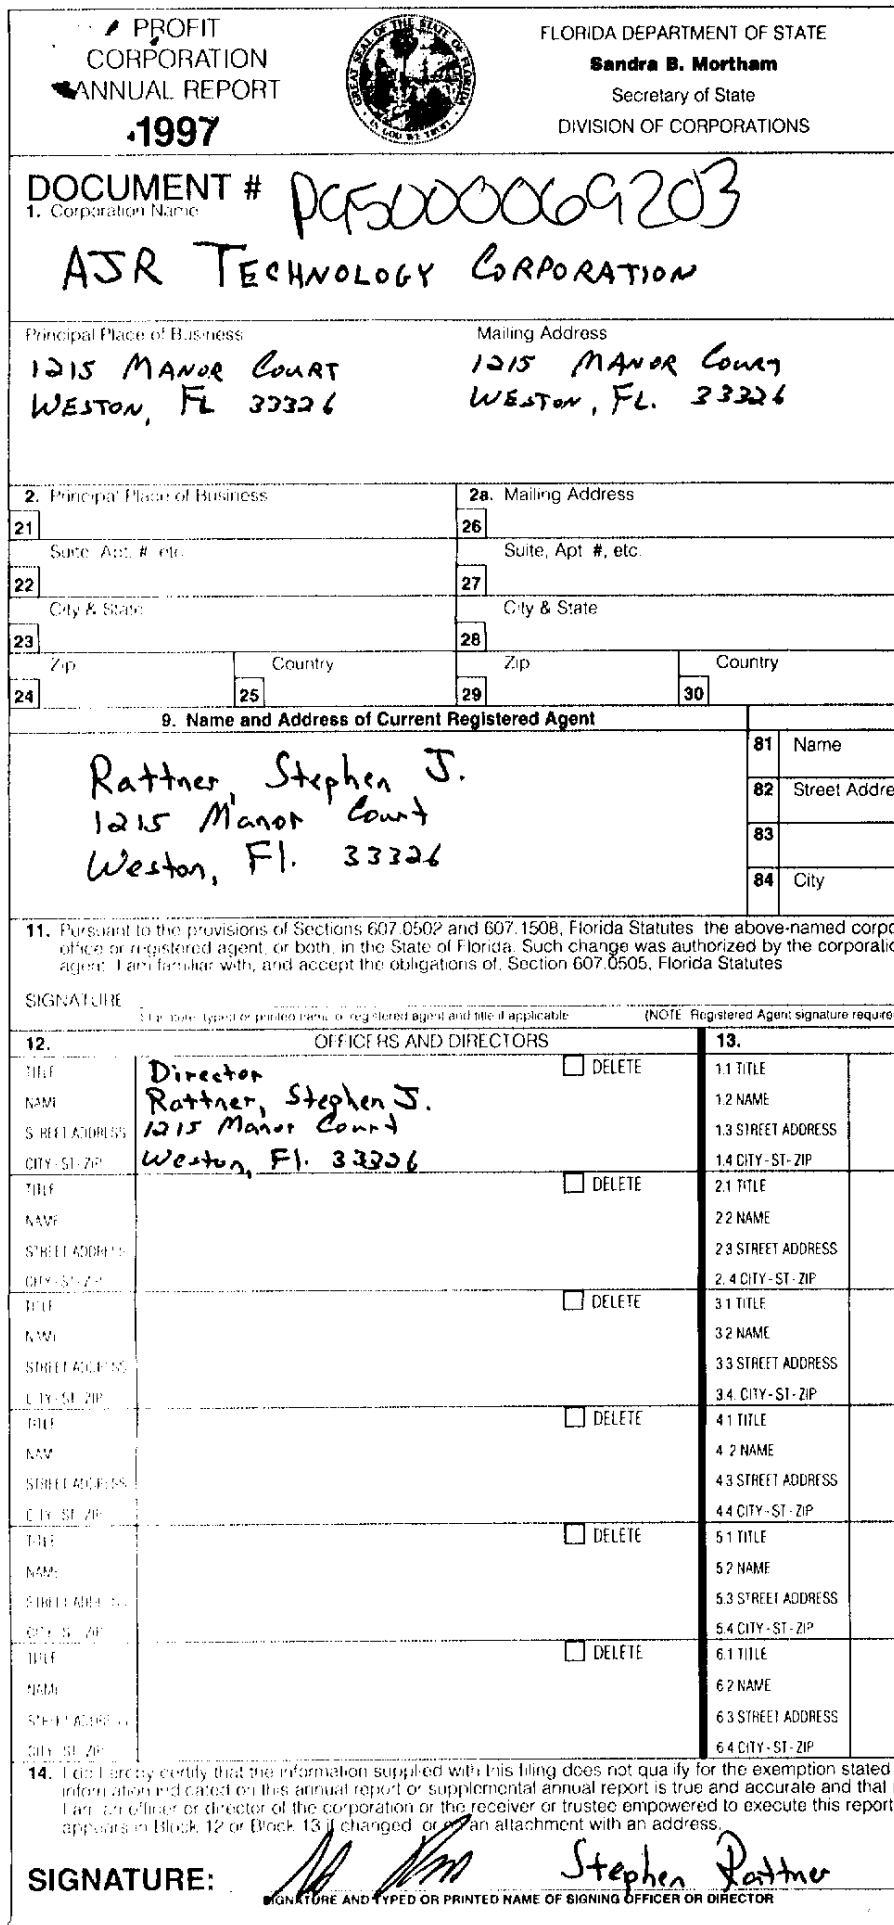 PROFIT
CORPORATION
ANNUAL REPORT
1997
GREAT SEAL OF THE STATE OF FLORIDA
IN GOD WE TRUST
FLORIDA DEPARTMENT OF STATE
Sandra B. Mortham
Secretary of State
DIVISION OF CORPORATIONS
DOCUMENT # P95000069203
1. Corporation Name
AJR TECHNOLOGY CORPORATION
Principal Place of Business
1215 MANOR COURT
WESTON, FL 33326
Mailing Address
1215 MANOR COURT
WESTON, FL. 33326
2. Principal Place of Business
2a. Mailing Address
21
26
Suite, Apt. #, etc.
Suite, Apt #, etc.
22
27
City & State
City & State
23
28
Zip
Country
Zip
Country
24
25
29
30
9. Name and Address of Current Registered Agent
Rattner, Stephen J.
1215 Manor Court
Weston, Fl. 33326
81 Name
82 Street Addre
83
84 City
11. Pursuant to the provisions of Sections 607.0502 and 607.1508, Florida Statutes the above-named corpo
office or registered agent, or both, in the State of Florida. Such change was authorized by the corporatio
agent. I am familiar with, and accept the obligations of, Section 607.0505, Florida Statutes
SIGNATURE
Signature, typed or printed name of registered agent and title if applicable (NOTE Registered Agent signature require
12. OFFICERS AND DIRECTORS 13.
TITLE Director DELETE 1.1 TITLE
NAME Rattner, Stephen J. 1.2 NAME
STREET ADDRESS 1215 Manor Court 1.3 STREET ADDRESS
CITY-ST-ZIP Weston, Fl. 33326 1.4 CITY-ST-ZIP
TITLE DELETE 2.1 TITLE
NAME 2 2 NAME
STREET ADDRESS 2 3 STREET ADDRESS
CITY-ST-ZIP 2. 4 CITY-ST-ZIP
TITLE DELETE 3 1 TITLE
NAME 3 2 NAME
STREET ADDRESS 3 3 STREET ADDRESS
CITY-ST-ZIP 3.4. CITY-ST-ZIP
TITLE DELETE 4 1 TITLE
NAME 4 2 NAME
STREET ADDRESS 4 3 STREET ADDRESS
CITY-ST-ZIP 4 4 CITY-ST-ZIP
TITLE DELETE 5 1 TITLE
NAME 5 2 NAME
STREET ADDRESS 5.3 STREET ADDRESS
CITY-ST-ZIP 5.4 CITY-ST-ZIP
TITLE DELETE 6.1 TITLE
NAME 6 2 NAME
STREET ADDRESS 6 3 STREET ADDRESS
CITY-ST-ZIP 6 4 CITY-ST-ZIP
14. I do hereby certify that the information supplied with this filing does not qualify for the exemption stated
information indicated on this annual report or supplemental annual report is true and accurate and that
I am an officer or director of the corporation or the receiver or trustee empowered to execute this report
appears in Block 12 or Block 13 if changed, or on an attachment with an address.
SIGNATURE: Stephen Rattner
SIGNATURE AND TYPED OR PRINTED NAME OF SIGNING OFFICER OR DIRECTOR